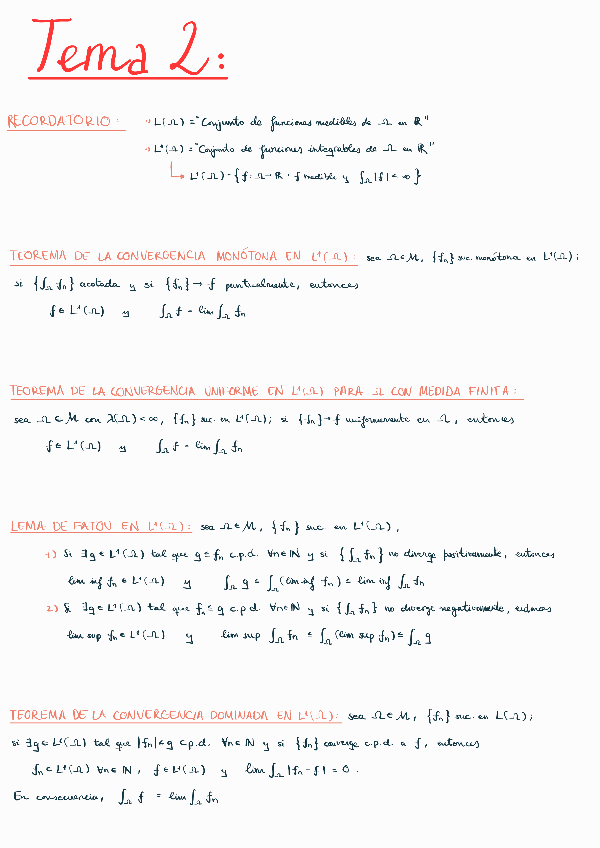 Tema 2:
RECORDATORIO: → L(Ω) = "Conjunto de funciones medibles de Ω en ℝ"
→ L¹(Ω) = "Conjunto de funciones integrables de Ω en ℝ"
↳ L¹(Ω) = {f: Ω → ℝ : f medible y ∫_Ω |f| < ∞}
TEOREMA DE LA CONVERGENCIA MONÓTONA EN L¹(Ω): sea Ω ∈ M, {fn} suc. monótona en L¹(Ω);
si {∫_Ω fn} acotada y si {fn} → f puntualmente, entonces
f ∈ L¹(Ω) y ∫_Ω f = lim ∫_Ω fn
TEOREMA DE LA CONVERGENCIA UNIFORME EN L¹(Ω) PARA Ω CON MEDIDA FINITA:
sea Ω ∈ M con λ(Ω) < ∞, {fn} suc. en L¹(Ω); si {fn} → f uniformemente en Ω, entonces
f ∈ L¹(Ω) y ∫_Ω f = lim ∫_Ω fn
LEMA DE FATOU EN L¹(Ω): sea Ω ∈ M, {fn} suc. en L¹(Ω),
1) Si ∃g ∈ L¹(Ω) tal que g ≤ fn c.p.d. ∀n∈ℕ y si {∫_Ω fn} no diverge positivamente, entonces
lim inf fn ∈ L¹(Ω) y ∫_Ω g ≤ ∫_Ω (lim inf fn) ≤ lim inf ∫_Ω fn
2) Si ∃g ∈ L¹(Ω) tal que fn ≤ g c.p.d. ∀n∈ℕ y si {∫_Ω fn} no diverge negativamente, entonces
lim sup fn ∈ L¹(Ω) y lim sup ∫_Ω fn ≤ ∫_Ω (lim sup fn) ≤ ∫_Ω g
TEOREMA DE LA CONVERGENCIA DOMINADA EN L¹(Ω): sea Ω ∈ M, {fn} suc. en L(Ω);
si ∃g ∈ L¹(Ω) tal que |fn| ≤ g c.p.d. ∀n∈ℕ y si {fn} converge c.p.d. a f, entonces
fn ∈ L¹(Ω) ∀n∈ℕ, f ∈ L¹(Ω) y lim ∫_Ω |fn - f| = 0.
En consecuencia, ∫_Ω f = lim ∫_Ω fn